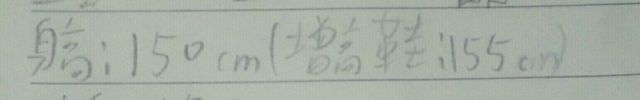 身高:150cm(增高鞋:155cm)